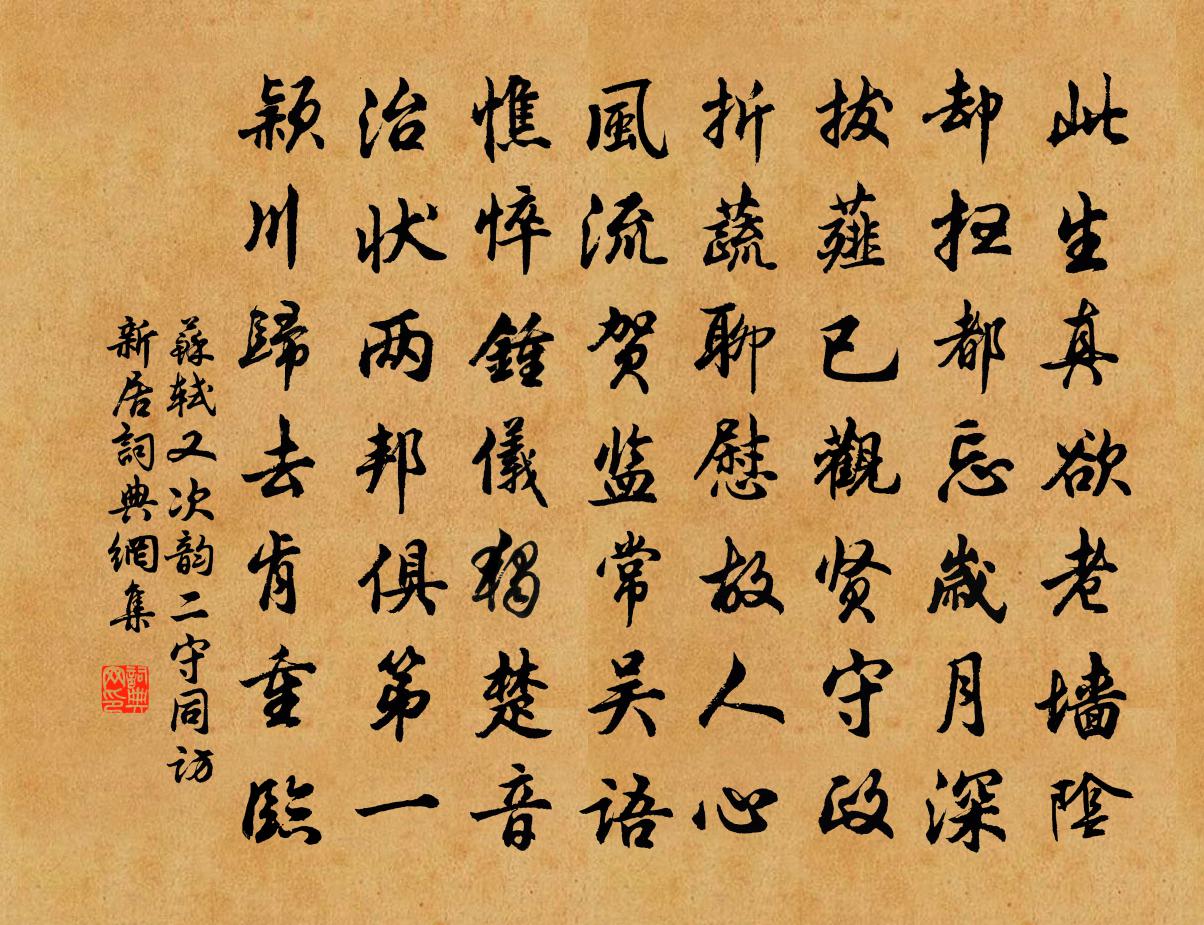 此生真欲老墙陰
却扫都忘歲月深
拔薤已觀贤守政
折蔬聊慰故人心
風流贺监常吴语
憔悴鍾儀独楚音
治状两邦俱第一
颍川歸去肯重臨
蘇轼又次韵二守同访
新居詞典網集
詞典
网印